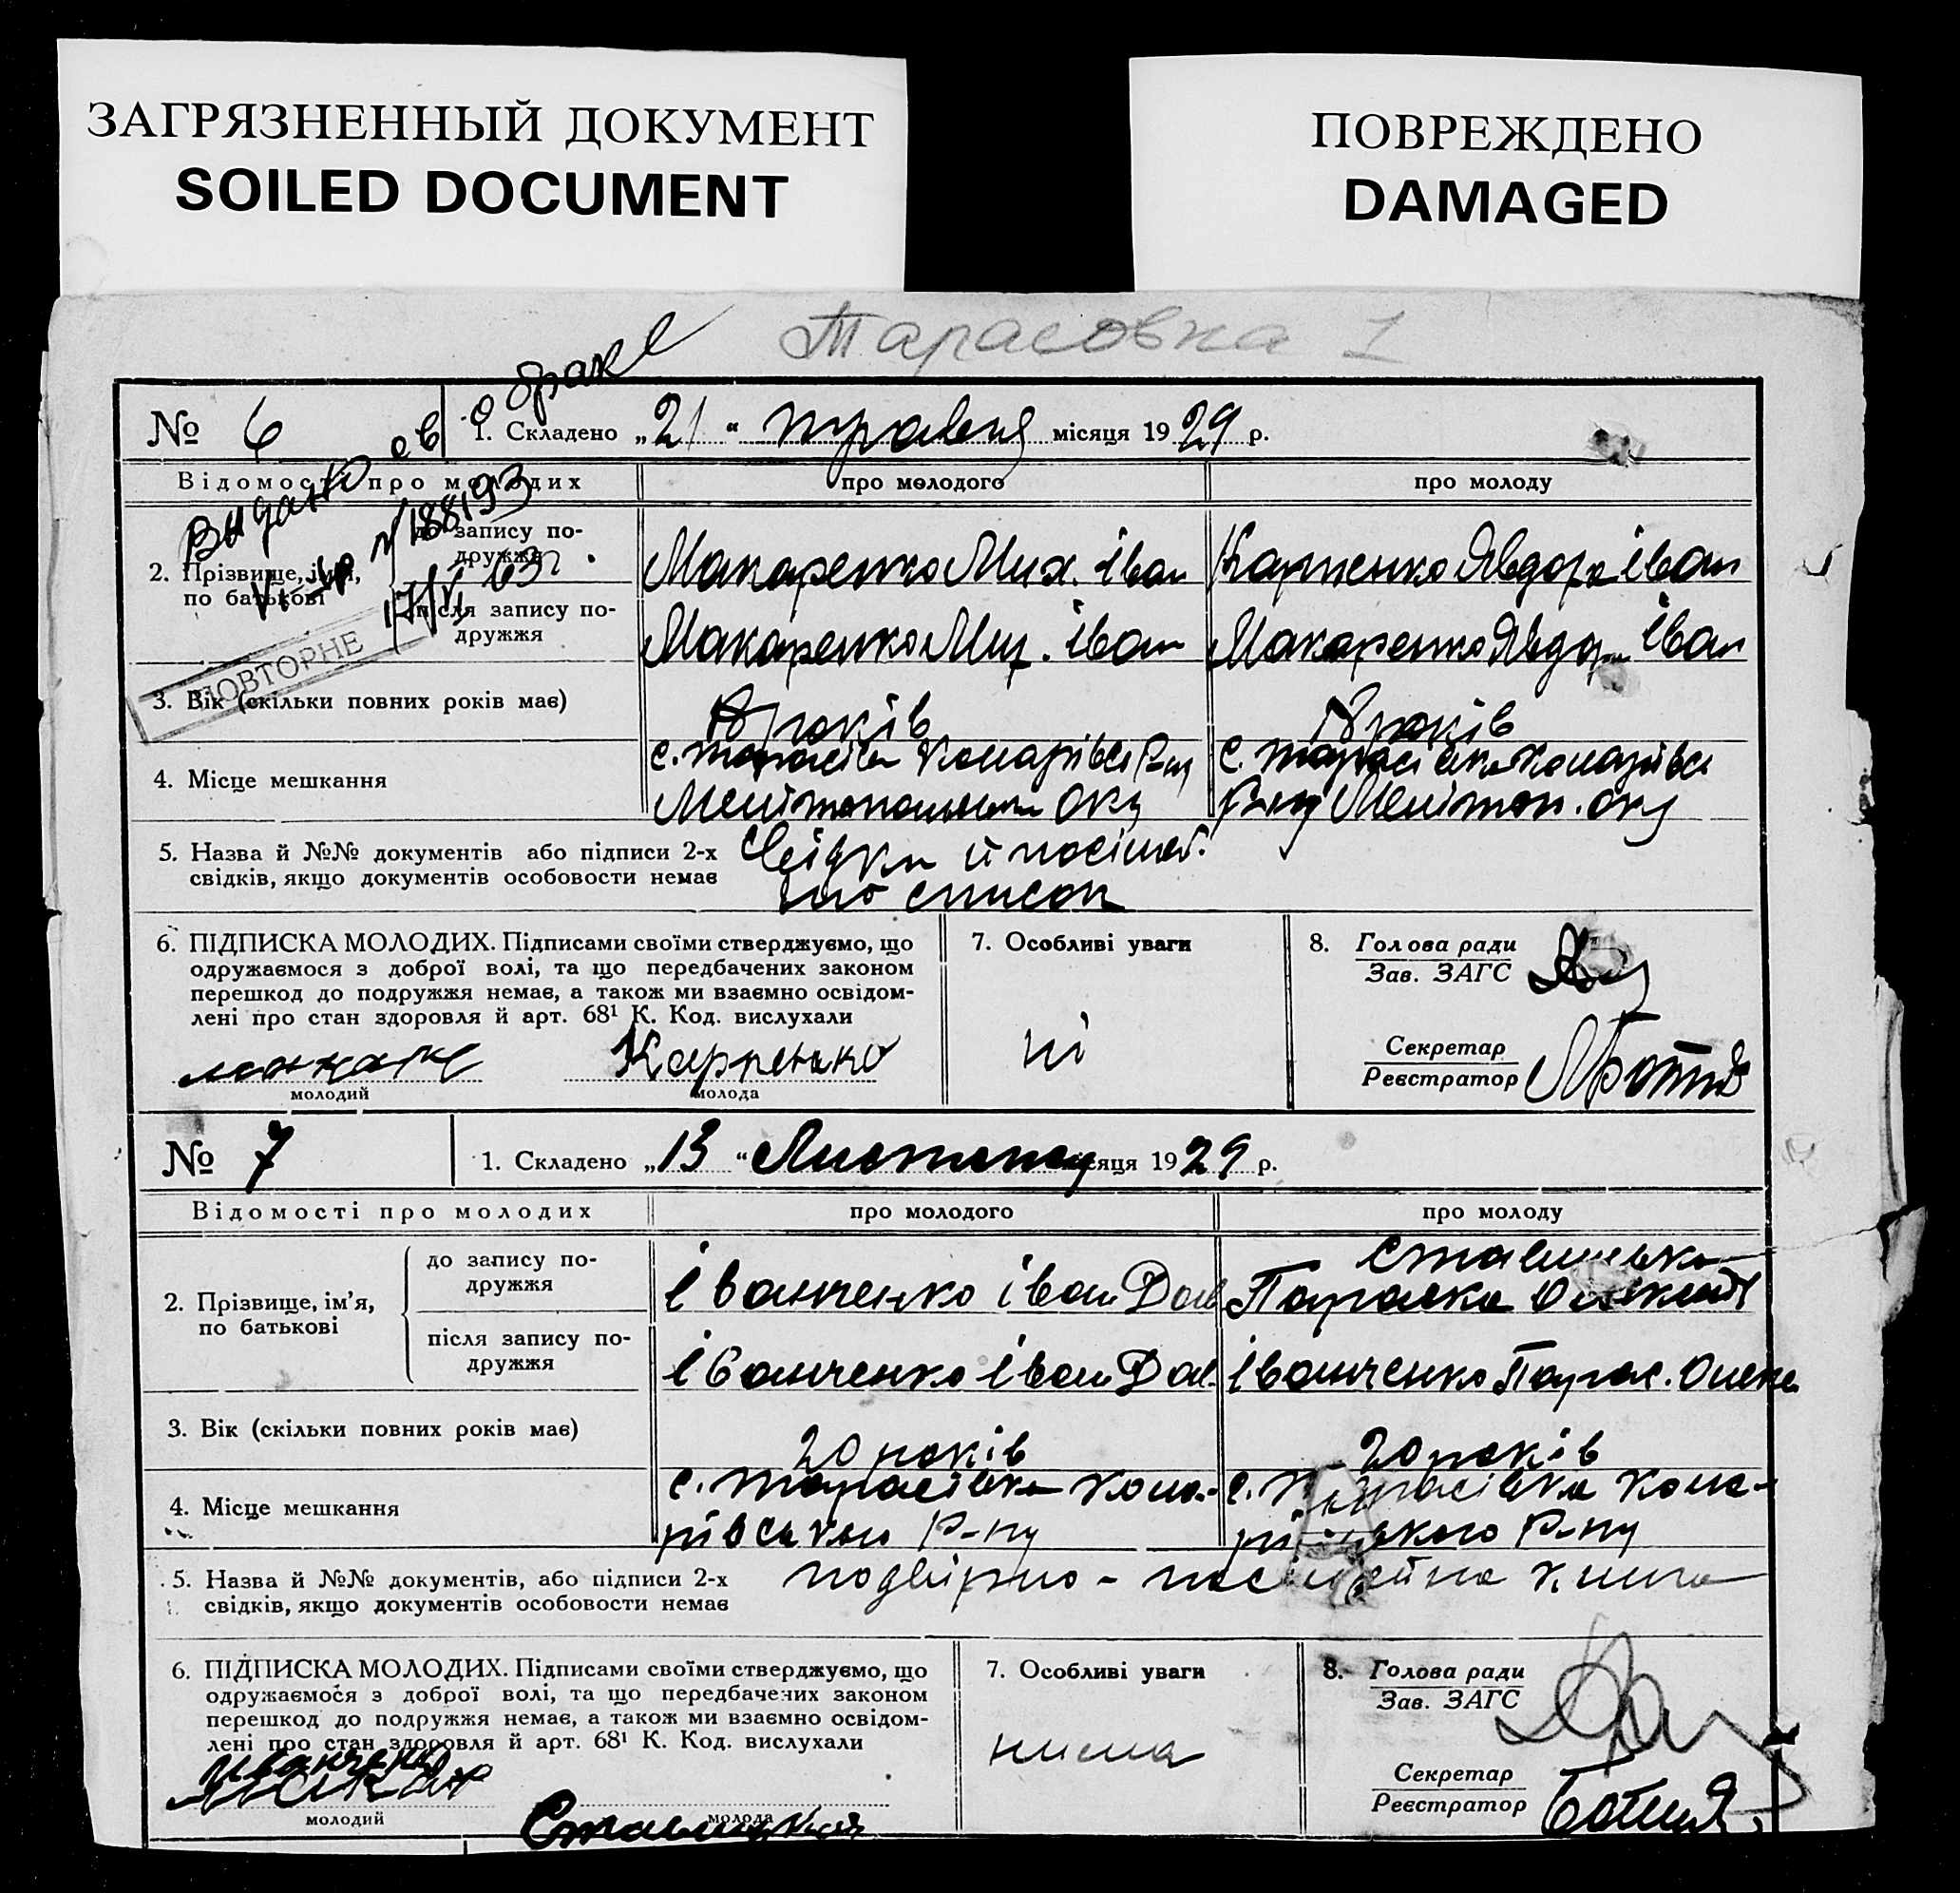 ЗАГРЯЗНЕННЫЙ ДОКУМЕНТ
SOILED DOCUMENT
ПОВРЕЖДЕНО
DAMAGED
Тарасовка 1
№ 6
1. Складено „21" травня місяця 1929 р.
Видано св о браке
V-ЖР № 188193
17/VI 63 г.
ПОВТОРНЕ
Відомості про молодих
про молодого
про молоду
2. Прізвище, ім'я, по батькові
до запису подружжя
Макаренко Мих. Іван
Карпенко Явдоха Іван
після запису подружжя
Макаренко Мих. Іван
Макаренко Явдох Іван
3. Вік (скільки повних років має)
років
18 років
4. Місце мешкання
с. Тарасівка Комарівськ Р-ну
Мелітопольськ Окр
с. Тарасівка Комарівськ
Р-ну Мелітоп. окр
5. Назва й №№ документів або підписи 2-х
свідків, якщо документів особовости немає
список
6. ПІДПИСКА МОЛОДИХ. Підписами своїми стверджуємо, що
одружаємося з доброї волі, та що передбачених законом
перешкод до подружжя немає, а також ми взаємно освідом-
лені про стан здоровля й арт. 68¹ К. Код. вислухали
молодий
Карпенко
молода
7. Особливі уваги
ні
8. Голова ради
Зав. ЗАГС
Секретар
Реєстратор
№ 7
1. Складено „13" Листопад місяця 1929 р.
Відомості про молодих
про молодого
про молоду
2. Прізвище, ім'я, по батькові
до запису подружжя
Іванченко Іван Дан
Ставицька
Параска
після запису подружжя
Іванченко Іван Дан.
Іванченко Парас. Олекс
3. Вік (скільки повних років має)
20 років
20 років
4. Місце мешкання
с. Тарасівка Кома-
рівського Р-ну
с. Тарасівка Кома-
рівського Р-ну
5. Назва й №№ документів, або підписи 2-х
свідків, якщо документів особовости немає
подвірно - посімейна книга
6. ПІДПИСКА МОЛОДИХ. Підписами своїми стверджуємо, що
одружаємося з доброї волі, та що передбачених законом
перешкод до подружжя немає, а також ми взаємно освідом-
лені про стан здоровля й арт. 68¹ К. Код. вислухали
молодий
Ставицкая
молода
7. Особливі уваги
нима
8. Голова ради
Зав. ЗАГС
Секретар
Реєстратор